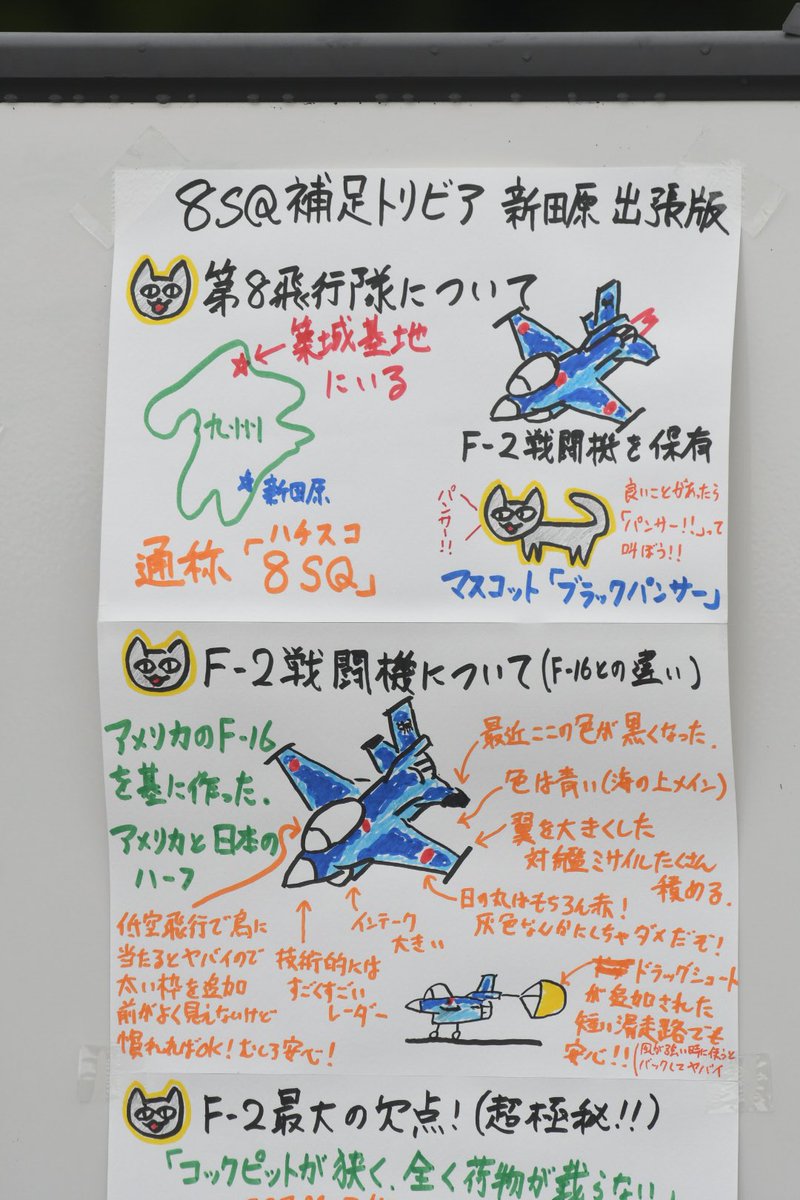 8SQ補足トリビア 新田原 出張版
第8飛行隊について
築城基地
にいる
九州
新田原
ハチスコ
通称「8SQ」
F-2戦闘機を保有
パンサー!!
良いことがあったら
「パンサー!!」って
叫ぼう!!
マスコット「ブラックパンサー」
F-2戦闘機について(F-16との違い)
アメリカのF-16
を基に作った.
アメリカと日本の
ハーフ
最近ここの色が黒くなった.
色は青い(海の上メイン)
翼を大きくした
対艦ミサイルたくさん
積める.
日の丸はもちろん赤!
灰色なんかにしちゃダメだぞ!
インテーク
大きい
技術的には
すごくすごい
レーダー
低空飛行で鳥に
当たるとヤバイので
太い枠を追加
前がよく見えないけど
慣れればOK!むしろ安心!
ドラッグシュート
が追加された
短い滑走路でも
安心!!
(風が強い時に使うと
バックしてヤバイ
F-2最大の欠点!(超極秘!!)
「コックピットが狭く、全く荷物が載らない」